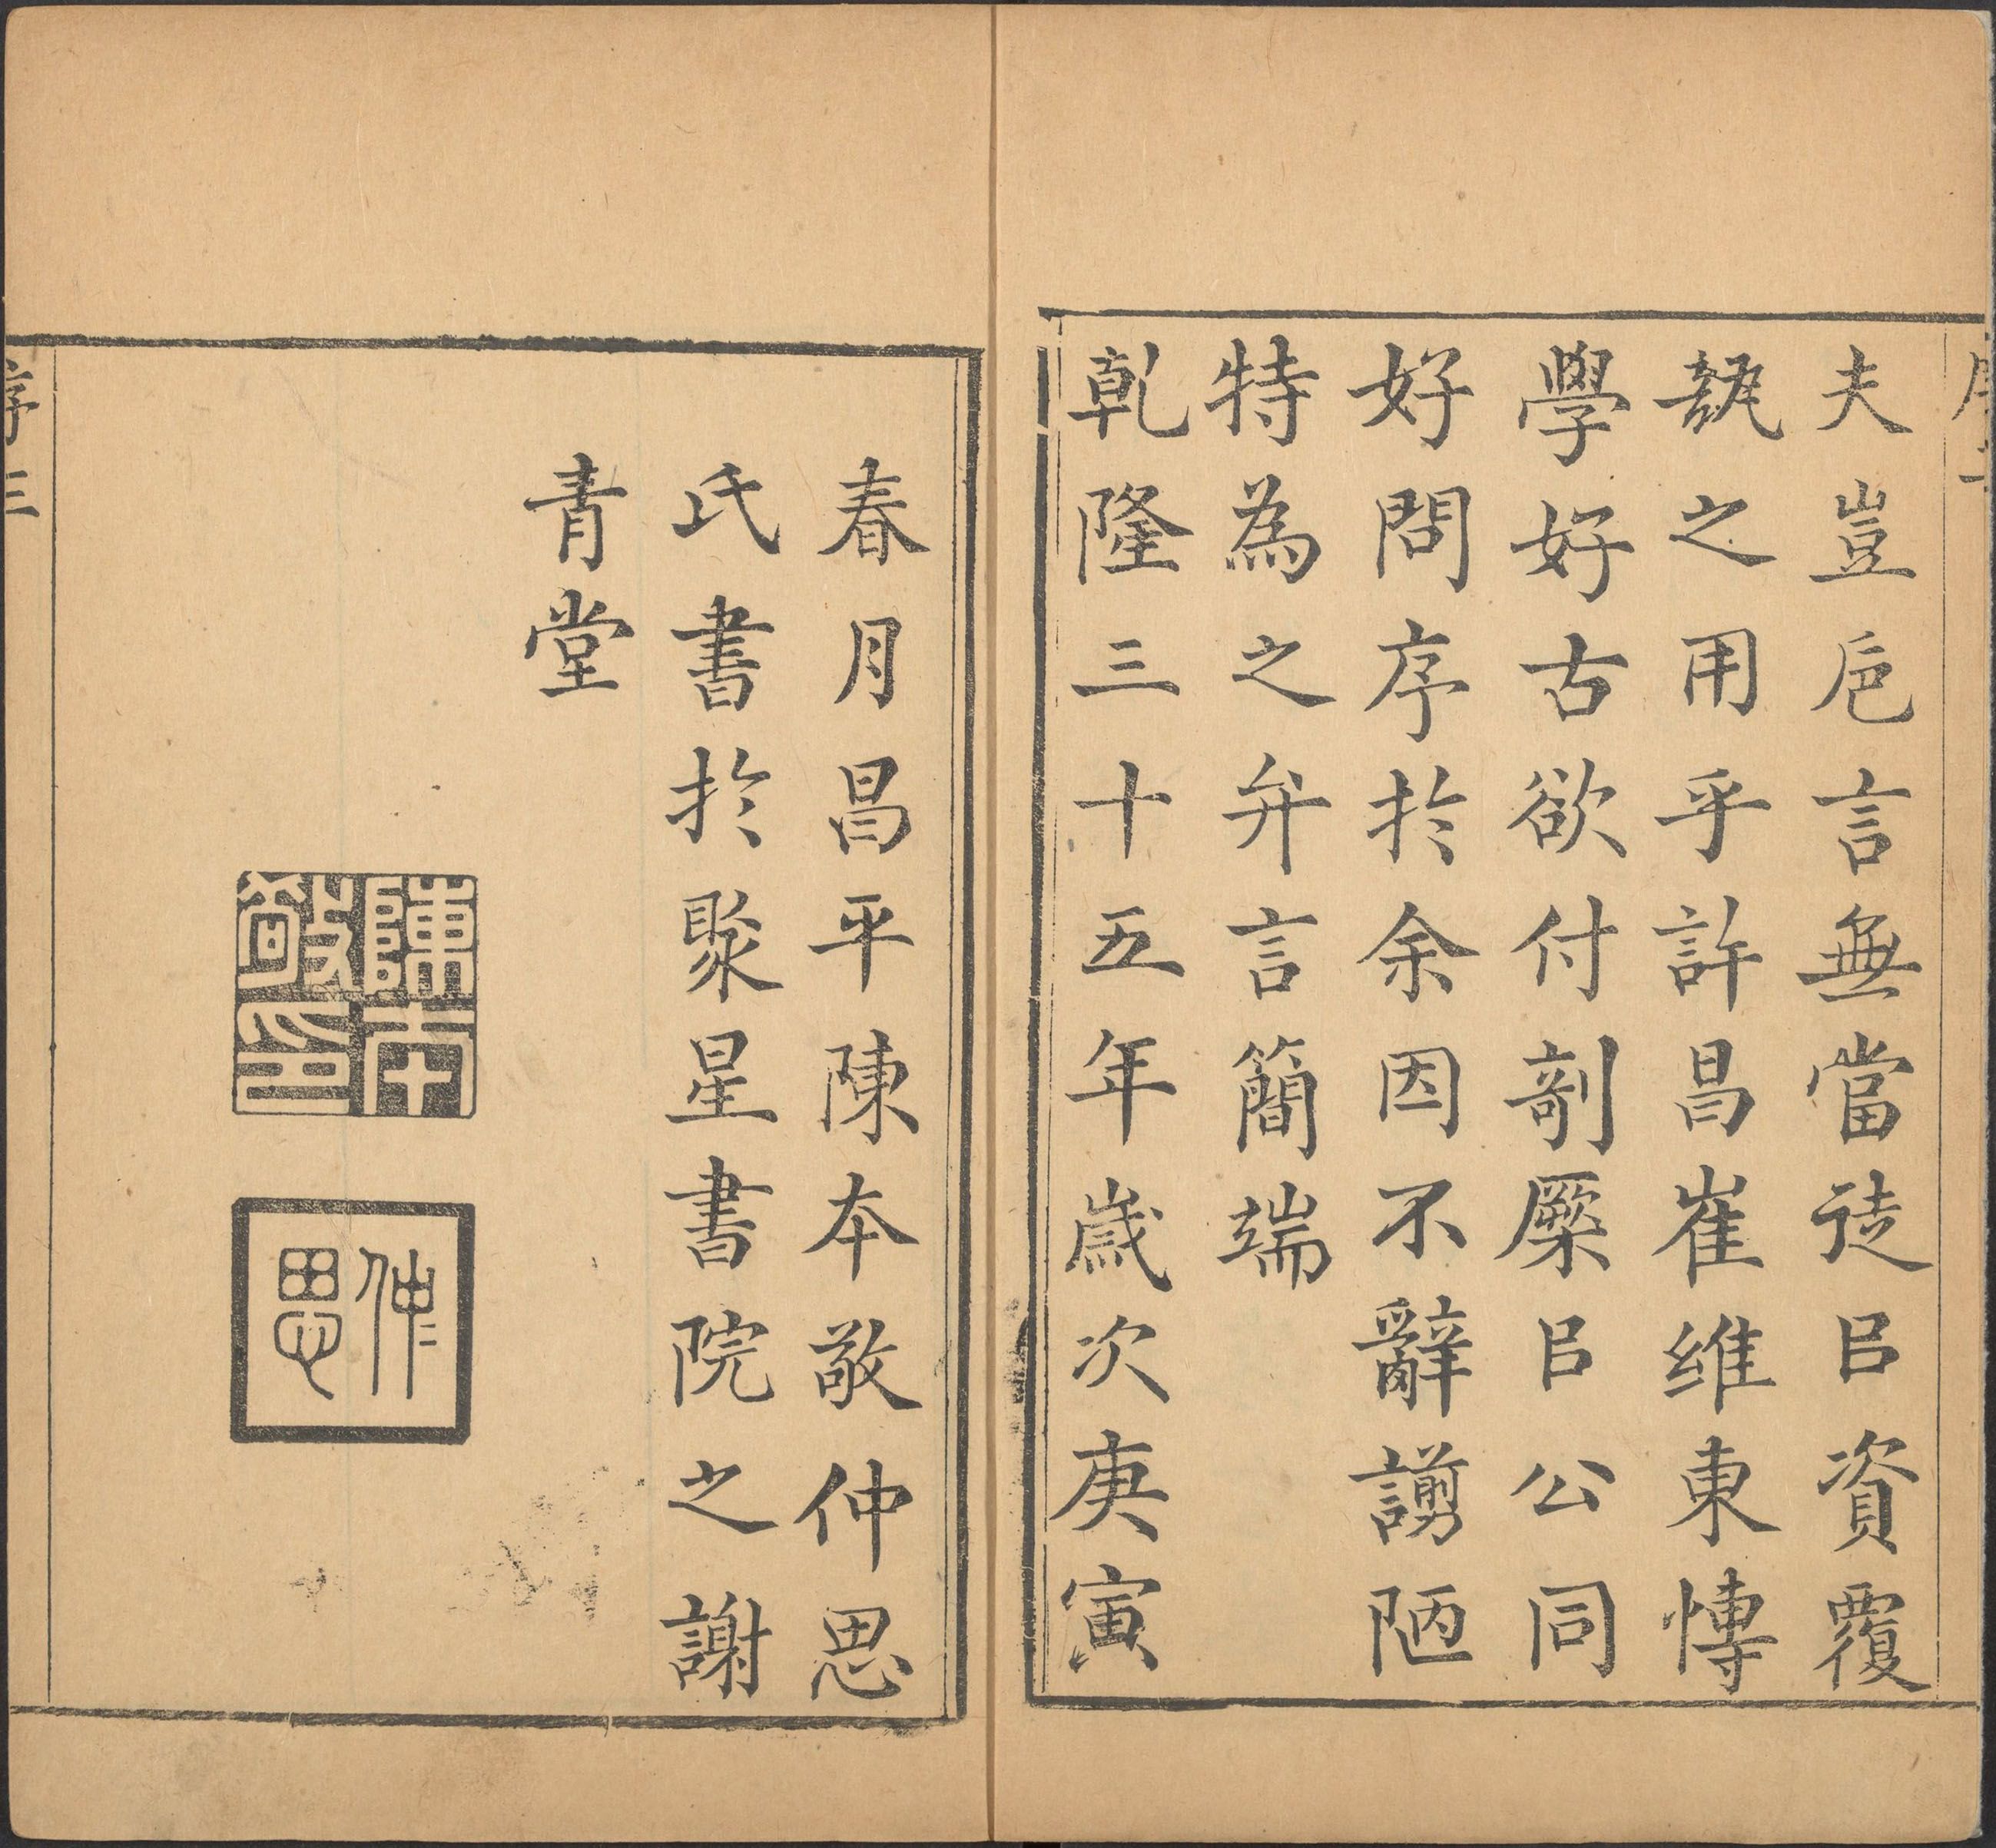 夫豈巵言無當徒㠯資覆
瓿之用乎許昌崔維東慱
學好古欲付剞橜㠯公同
好問序扵余因不辭謭陋
特為之弁言簡端
乾隆三十五年歲次庚寅
春月昌平陳本敬仲思
氏書扵聚星書院之謝
青堂
陳本敬印
仲思
序三